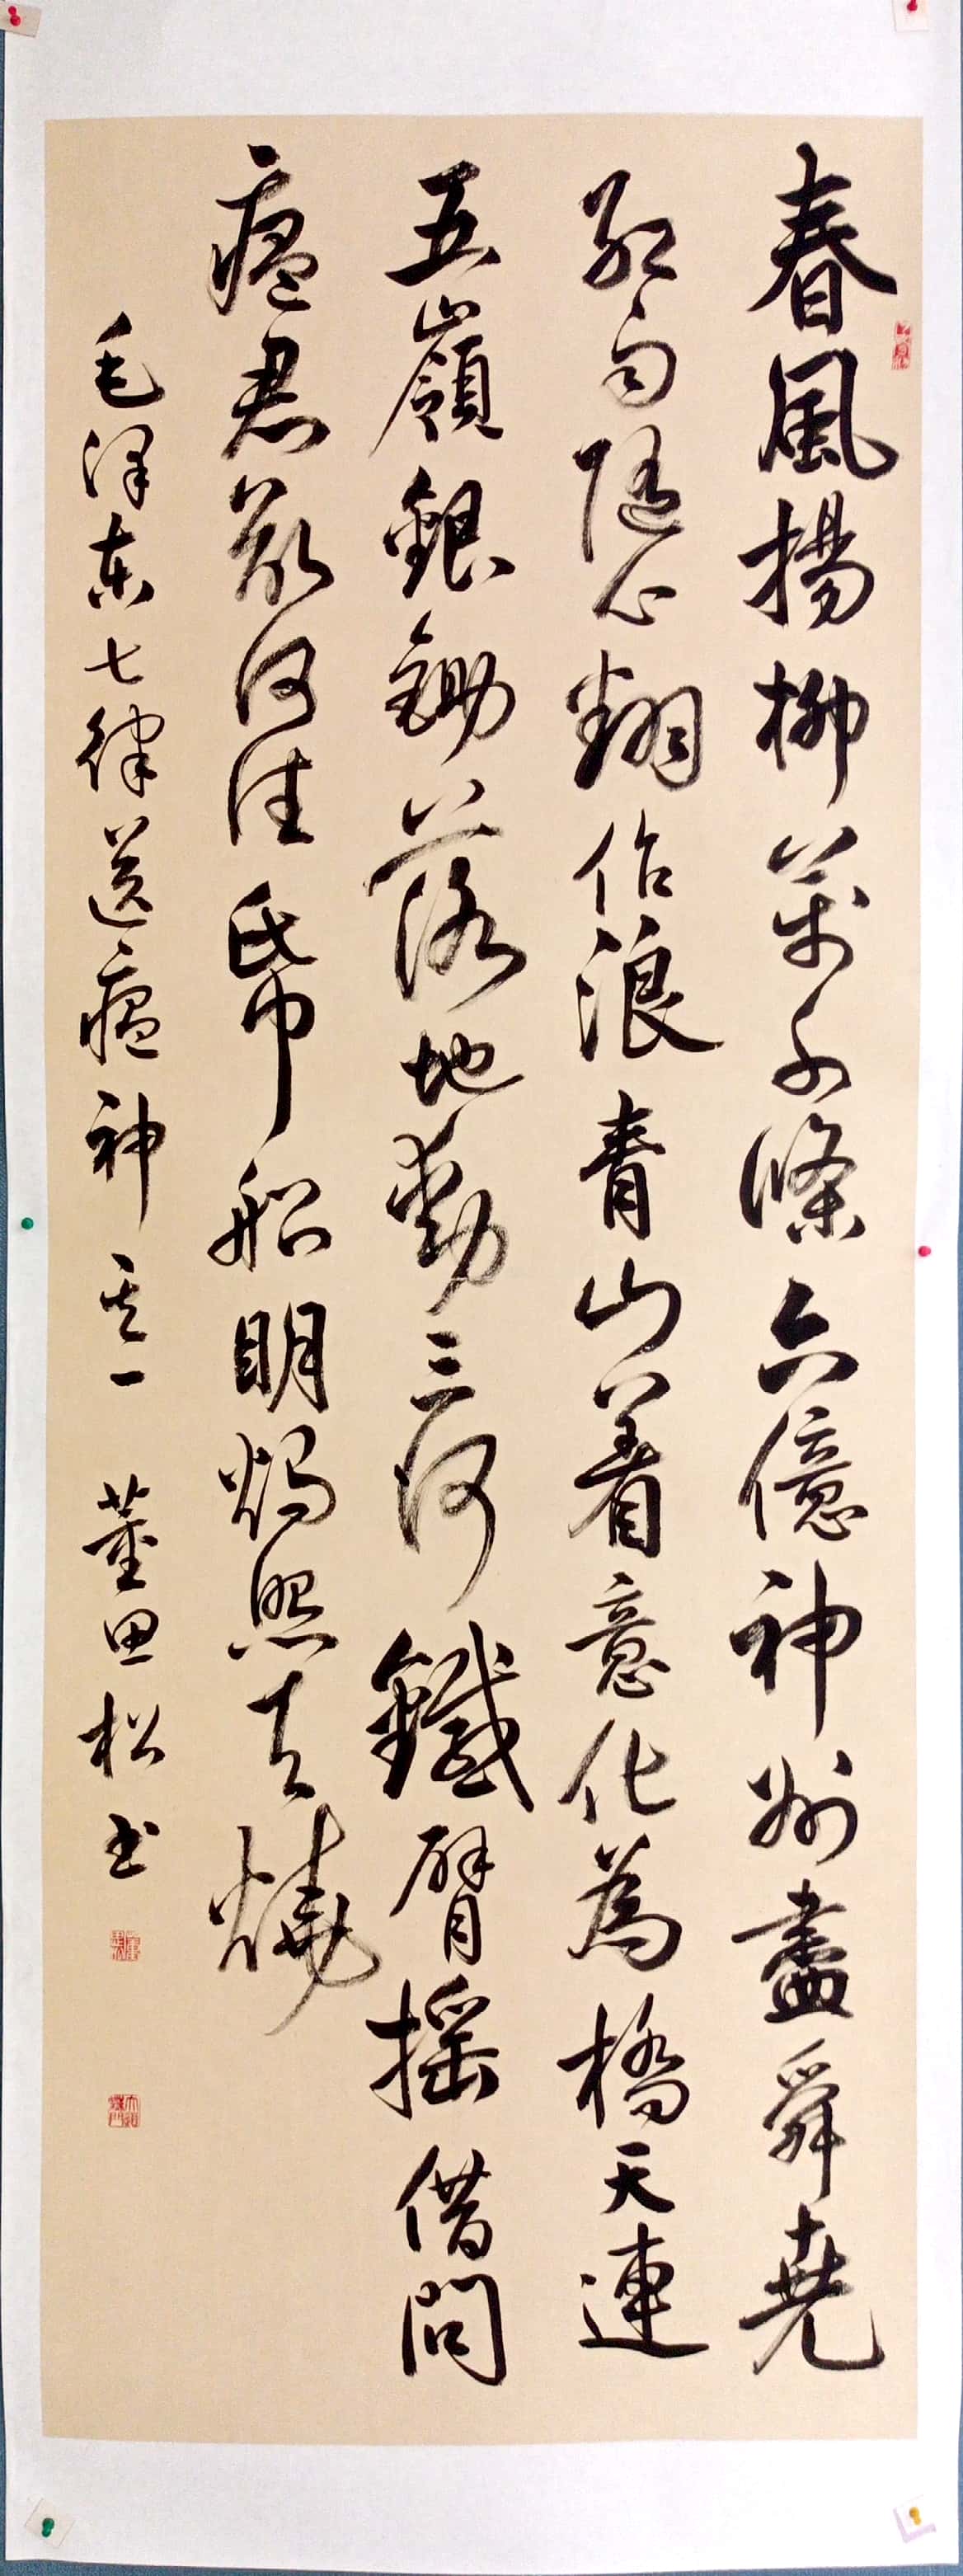 春風揚柳萬千條六億神州盡舜堯
紅雨隨心翻作浪青山着意化為橋天連
五嶺銀鋤落地動三河鐵臂摇借問
瘟君欲何往帋船明燭照天燒
毛泽东七律送瘟神其一 董松书